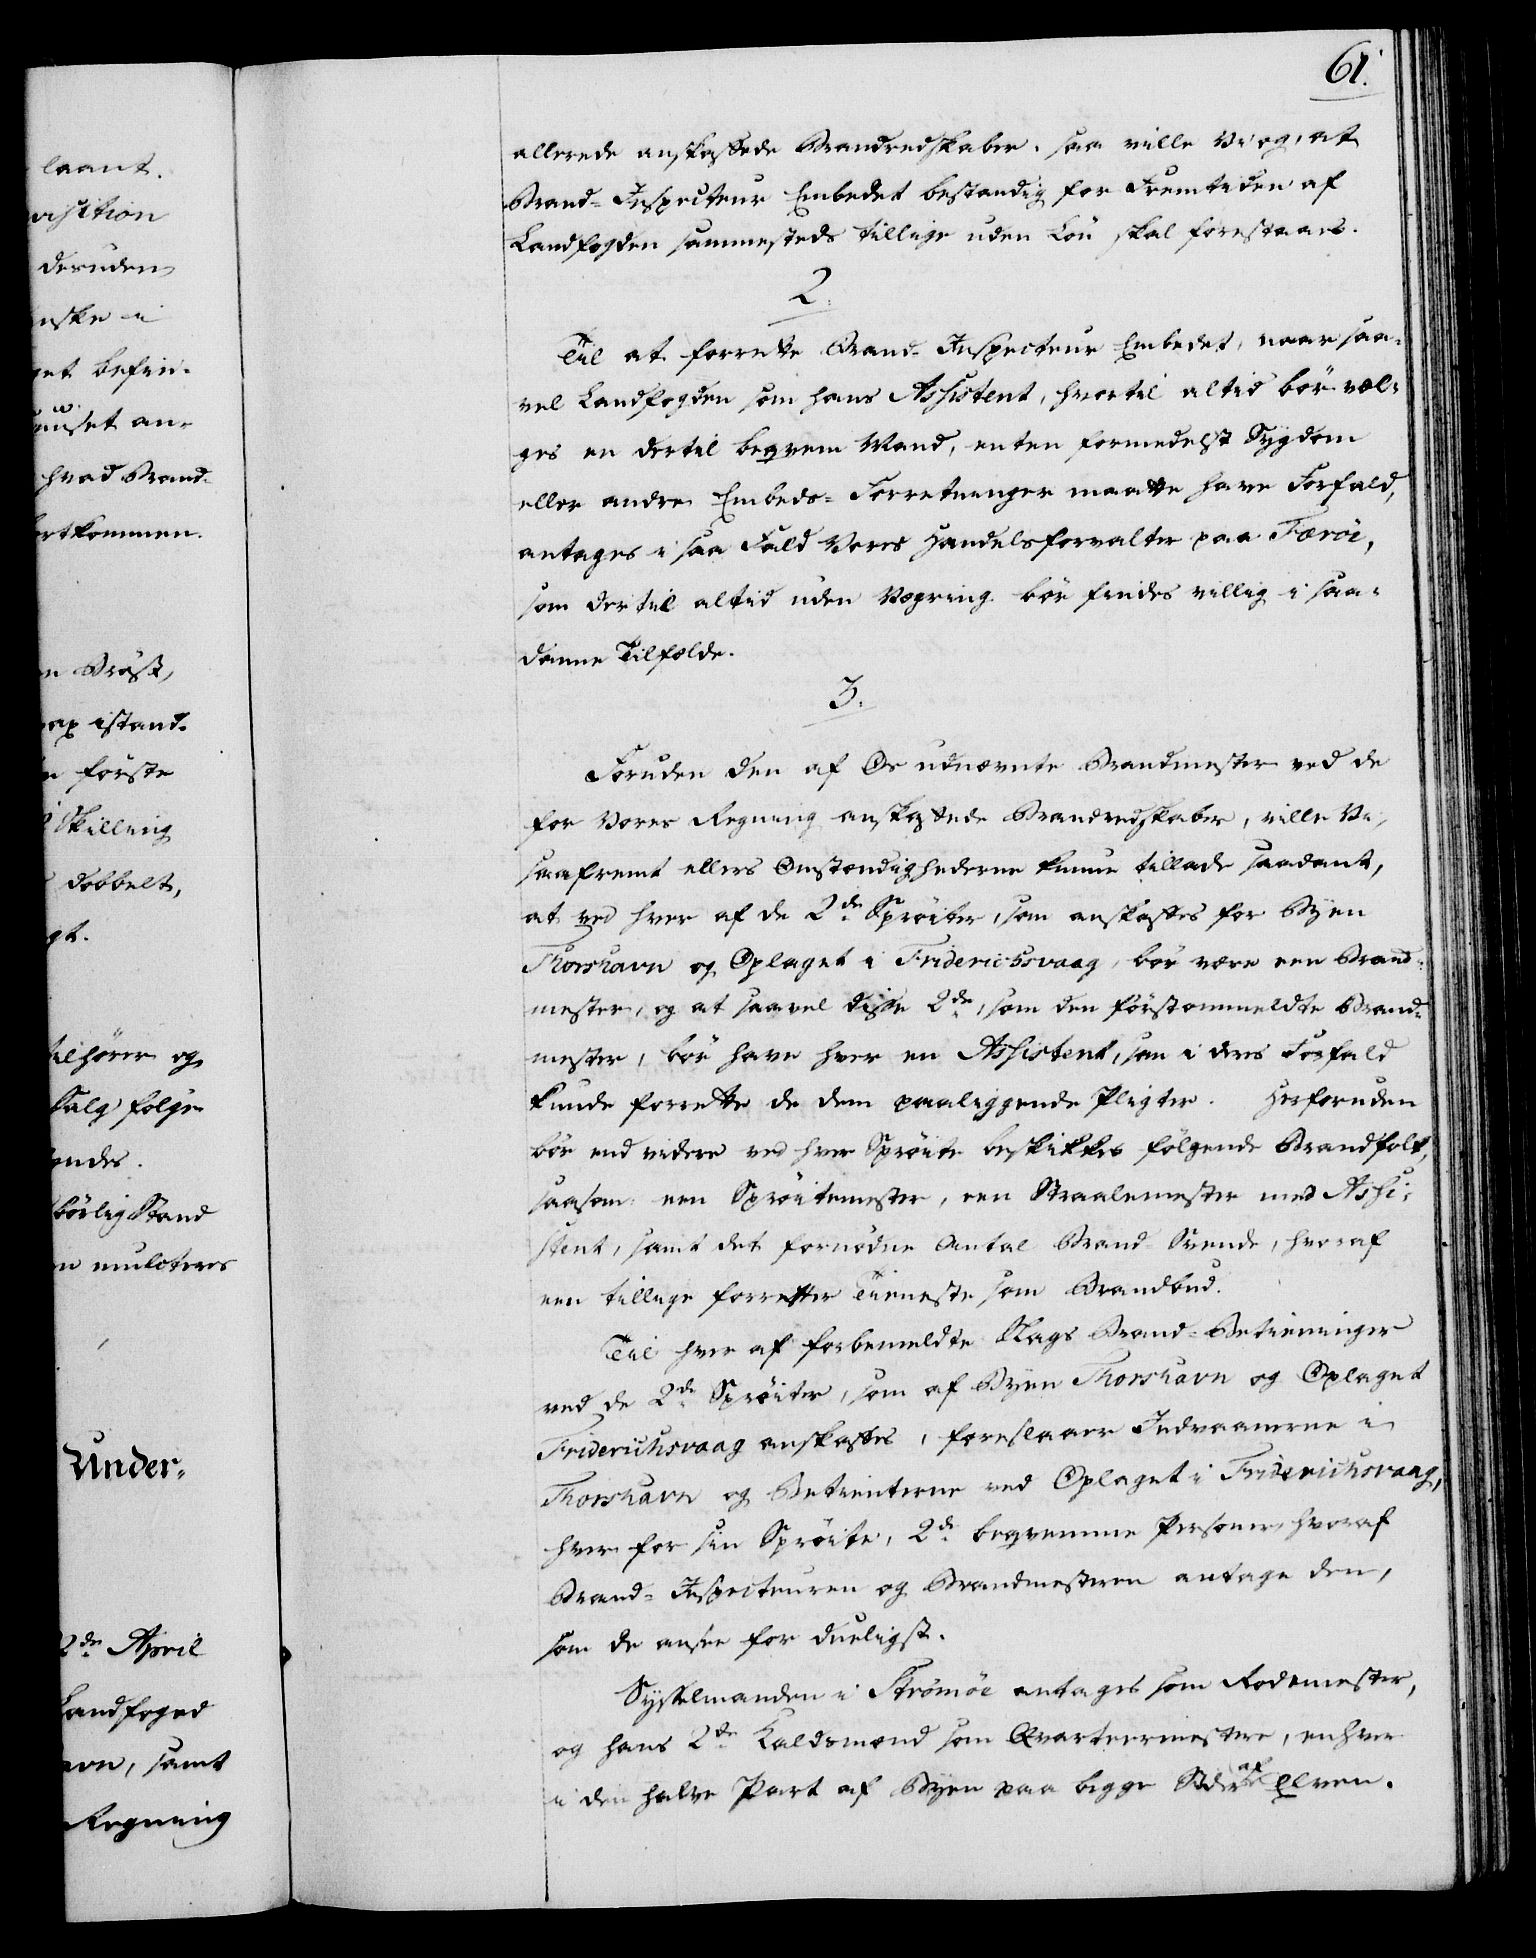 laant.
deruden
befin-
set an-
hvad Brand-
ortkommen.
Bröst,
istand-
förste
Skilling
dobbelt,
gt.
tilhörer og
Salg fölge
endes.
börlig Stand
mulcteres
Under-
2de April
Landfoged
avn, samt
Regning
61.
allerede anskaffede Brandredskaber. saa ville Vi og, at
Brand-Inspecteur Embedet bestandig for Fremtiden af
Landfogden sammesteds tillige uden Lön skal forestaaes.
2.
Til at forrette Brand-Inspecteur Embedet, naar saa-
vel Landfogden som hans Assistent, hvortil altid bör væl-
ges en dertil beqvem Mand, enten formedelst Sygdom
eller andre Embeds-Forretninger maatte have Forfald,
antages i saa Fald Vores Handelsforvalter paa Færöe,
som dertil altid uden Vægring bör findes villig i saa-
danne Tilfælde.
3.
Foruden den af Os udnævnte Brandmester ved de
for Vores Regning anskaffede Brandredskaber, ville Vi,
saafremt ellers Omstændighederne kunne tillade saadant,
at ved hver af de 2de Spröiter, som anskaffes for Byen
Thorshavn og Oplaget i Friderichsvaag, bör være een Brand-
mester, og at saavel disse 2de, som den förstommeldte Brand-
mester, bör have hver en Assistent, som i deres Forfald
kunde forrette de dem paaliggende Pligter. Herforuden
bör end videre ved hver Spröite beskikkes fölgende Brandfolk,
saasom: een Spröitemester, een Straalemester med Assi-
stent, samt det fornödne Antal Brand-Svende, hvoraf
een tillige forretter Tieneste som Brandbud.
Til hver af forbemeldte Slags Brand-Betieninger
ved de 2de Spröiter, som af Byen Thorshavn og Oplaget
Friderichsvaag anskaffes, foreslaaer Indvaanerne i
Thorshavn og Betienterne ved Oplaget i Friderichsvaag,
hver for sin Spröite, 2de beqvemme Personer, hvoraf
Brand-Inspecteuren og Brandmesteren antage den,
som de ansee for dueligst.
Sysselmanden i Strömöe antages som Rodemester,
og hans 2de Kaldsmænd som Qvarteermestere, enhver
i den halve Part af Byen paa begge Sider af Elven.